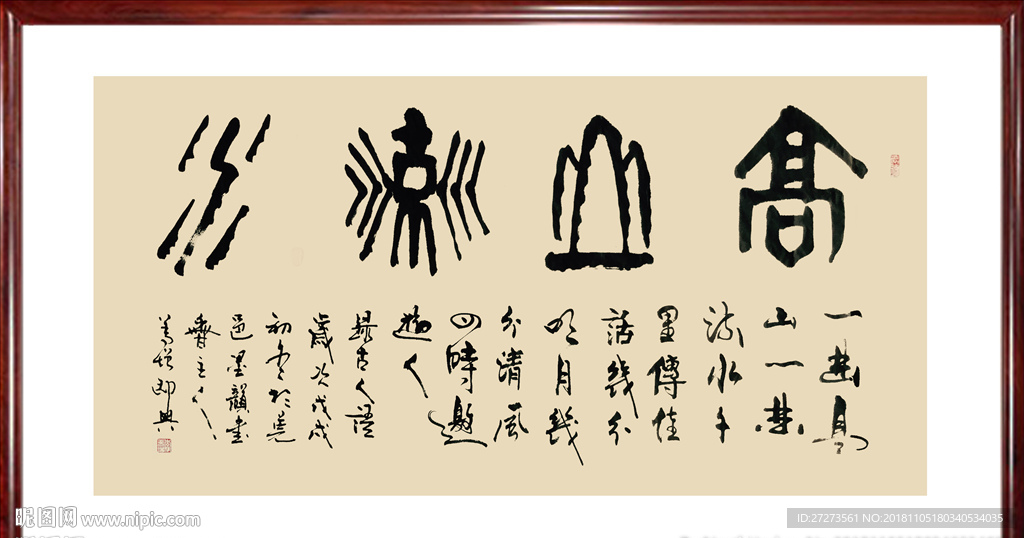 高山流水
一曲高
山一曲
流水千
里傳佳
話幾分
明月幾
分清風
四時邀
人
錄古人語
歲次戊戌
初冬於堯
邑墨韻書
齋主人
即興
昵图网 www.nipic.com
ID:27273561 NO:20181105180340534035